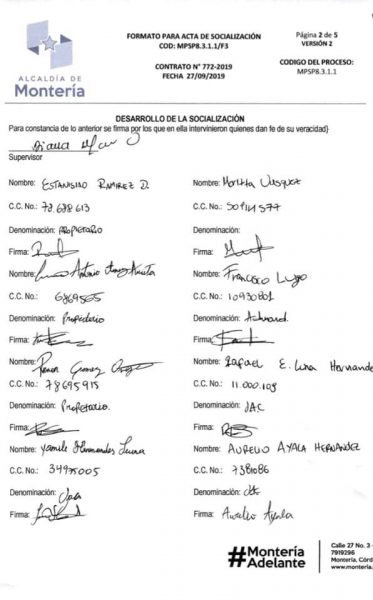 ALCALDÍA DE
Montería
FORMATO PARA ACTA DE SOCIALIZACIÓN
COD: MPSP8.3.1.1/F3
CONTRATO N° 772-2019
FECHA 27/09/2019
Página 2 de 5
VERSIÓN 2
CODIGO DEL PROCESO:
MPSP8.3.1.1
DESARROLLO DE LA SOCIALIZACIÓN
Para constancia de lo anterior se firma por los que en ella intervinieron quienes dan fe de su veracidad}
Supervisor
Nombre: ESTANISLAO RAMIREZ D.
C.C. No.: 78.688.613
Denominación: PROPIETARIO
Firma:
Nombre: Antonio
C.C. No.: 6869565
Denominación: Propietario
Firma:
Nombre: Ramon Gomez
C.C. No.: 78695915
Denominación: Propietario.
Firma:
Nombre: Yamile Hernandez
C.C. No.: 34995005
Denominación:
Firma:
Nombre: Vasquez
C.C. No.:
Denominación:
Firma:
Nombre: FRANCISCO Lugo
C.C. No.: 10930801
Denominación:
Firma:
Nombre: Rafael E. Luna Hernande
C.C. No.: 11.000.109
Denominación: JAC
Firma:
Nombre: AURELIO AYALA HERNANDEZ
C.C. No.: 7381086
Denominación:
Firma: Aurelio Ayala
#Montería
Adelante
Calle 27 No. 3 -
7919296
Montería, Córd
www.montería.